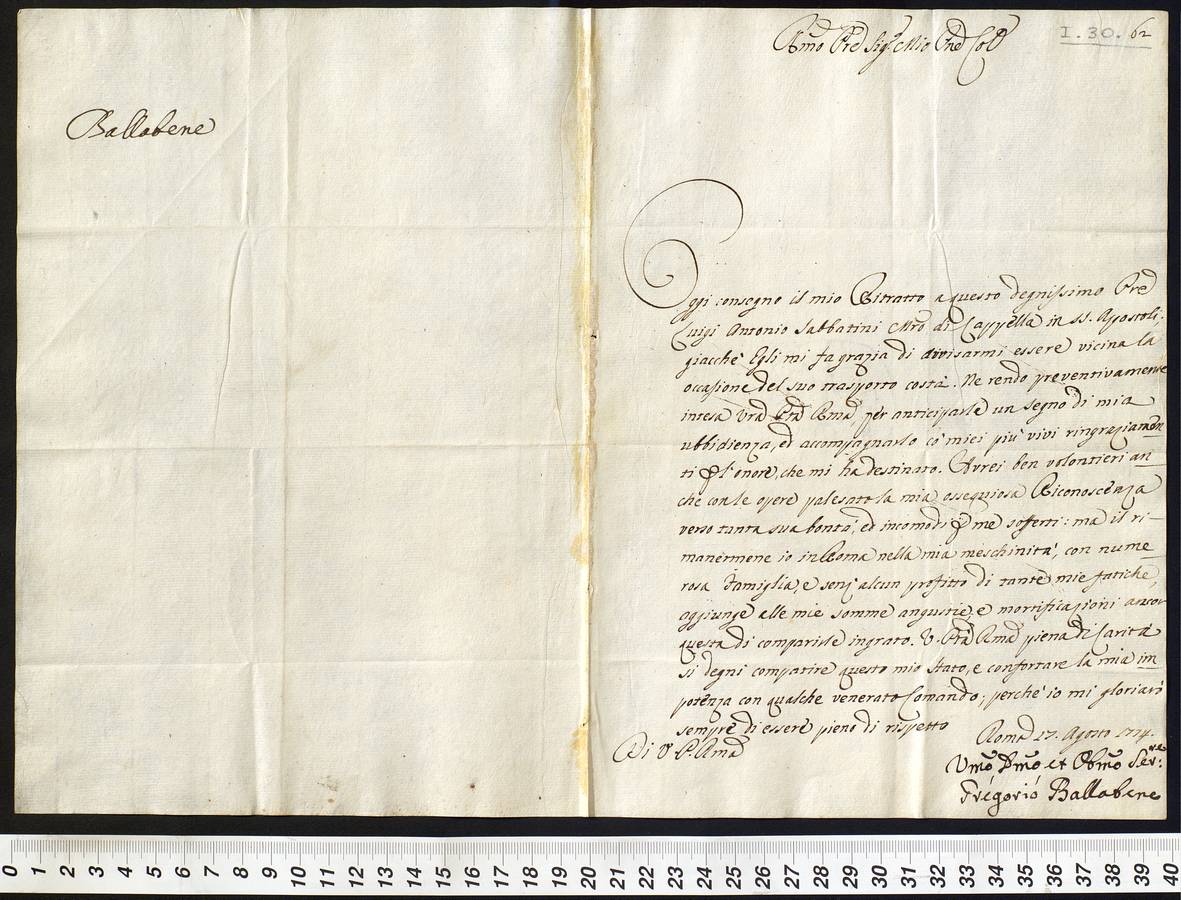 Ballabene
I. 30. 62
Rmō Prē Sigr. Mio Prōe Colō
Oggi consegno il mio Ritratto a questo degnissimo Prē
Luigi Antonio Sabbatini Mrō di Cappella in SS. Apostoli;
giacchè Egli mi fa grazia di divisarmi essere vicina la
occasione del suo trasporto costà. Ne rendo preventivamente
intesa Vrā Prtà Rmā, per anticiparle un segno di mia
ubbidienza, ed accompagnarlo cò miei più vivi ringraziamen
ti p l'onore, che mi ha destinato. Avrei ben volontieri an
che con le opere palesato la mia ossequiosa Riconoscenza
verso tanta sua bontà, ed incomodi p me sofferti: ma il ri-
manermene io in Roma nella mia meschinità, con nume
rosa Famiglia, e senz' alcun profitto di tante mie fatiche,
aggiunge alle mie somme angustie, e mortificazioni ancor
questa di comparirle ingrato. V. Prtà Rmā piena di Carità
si degni compatire questo mio Stato, e confortare la mia im
potenza con qualche venerato Comando; perchè io mi gloriarò
sempre di essere pieno di rispetto
Di V. P. Rmā
Roma 17. Agosto 1774.
Umō Dmō et Obmō Servre:
Gregorio Ballabene
0 1 2 3 4 5 6 7 8 9 10 11 12 13 14 15 16 17 18 19 20 21 22 23 24 25 26 27 28 29 30 31 32 33 34 35 36 37 38 39 40